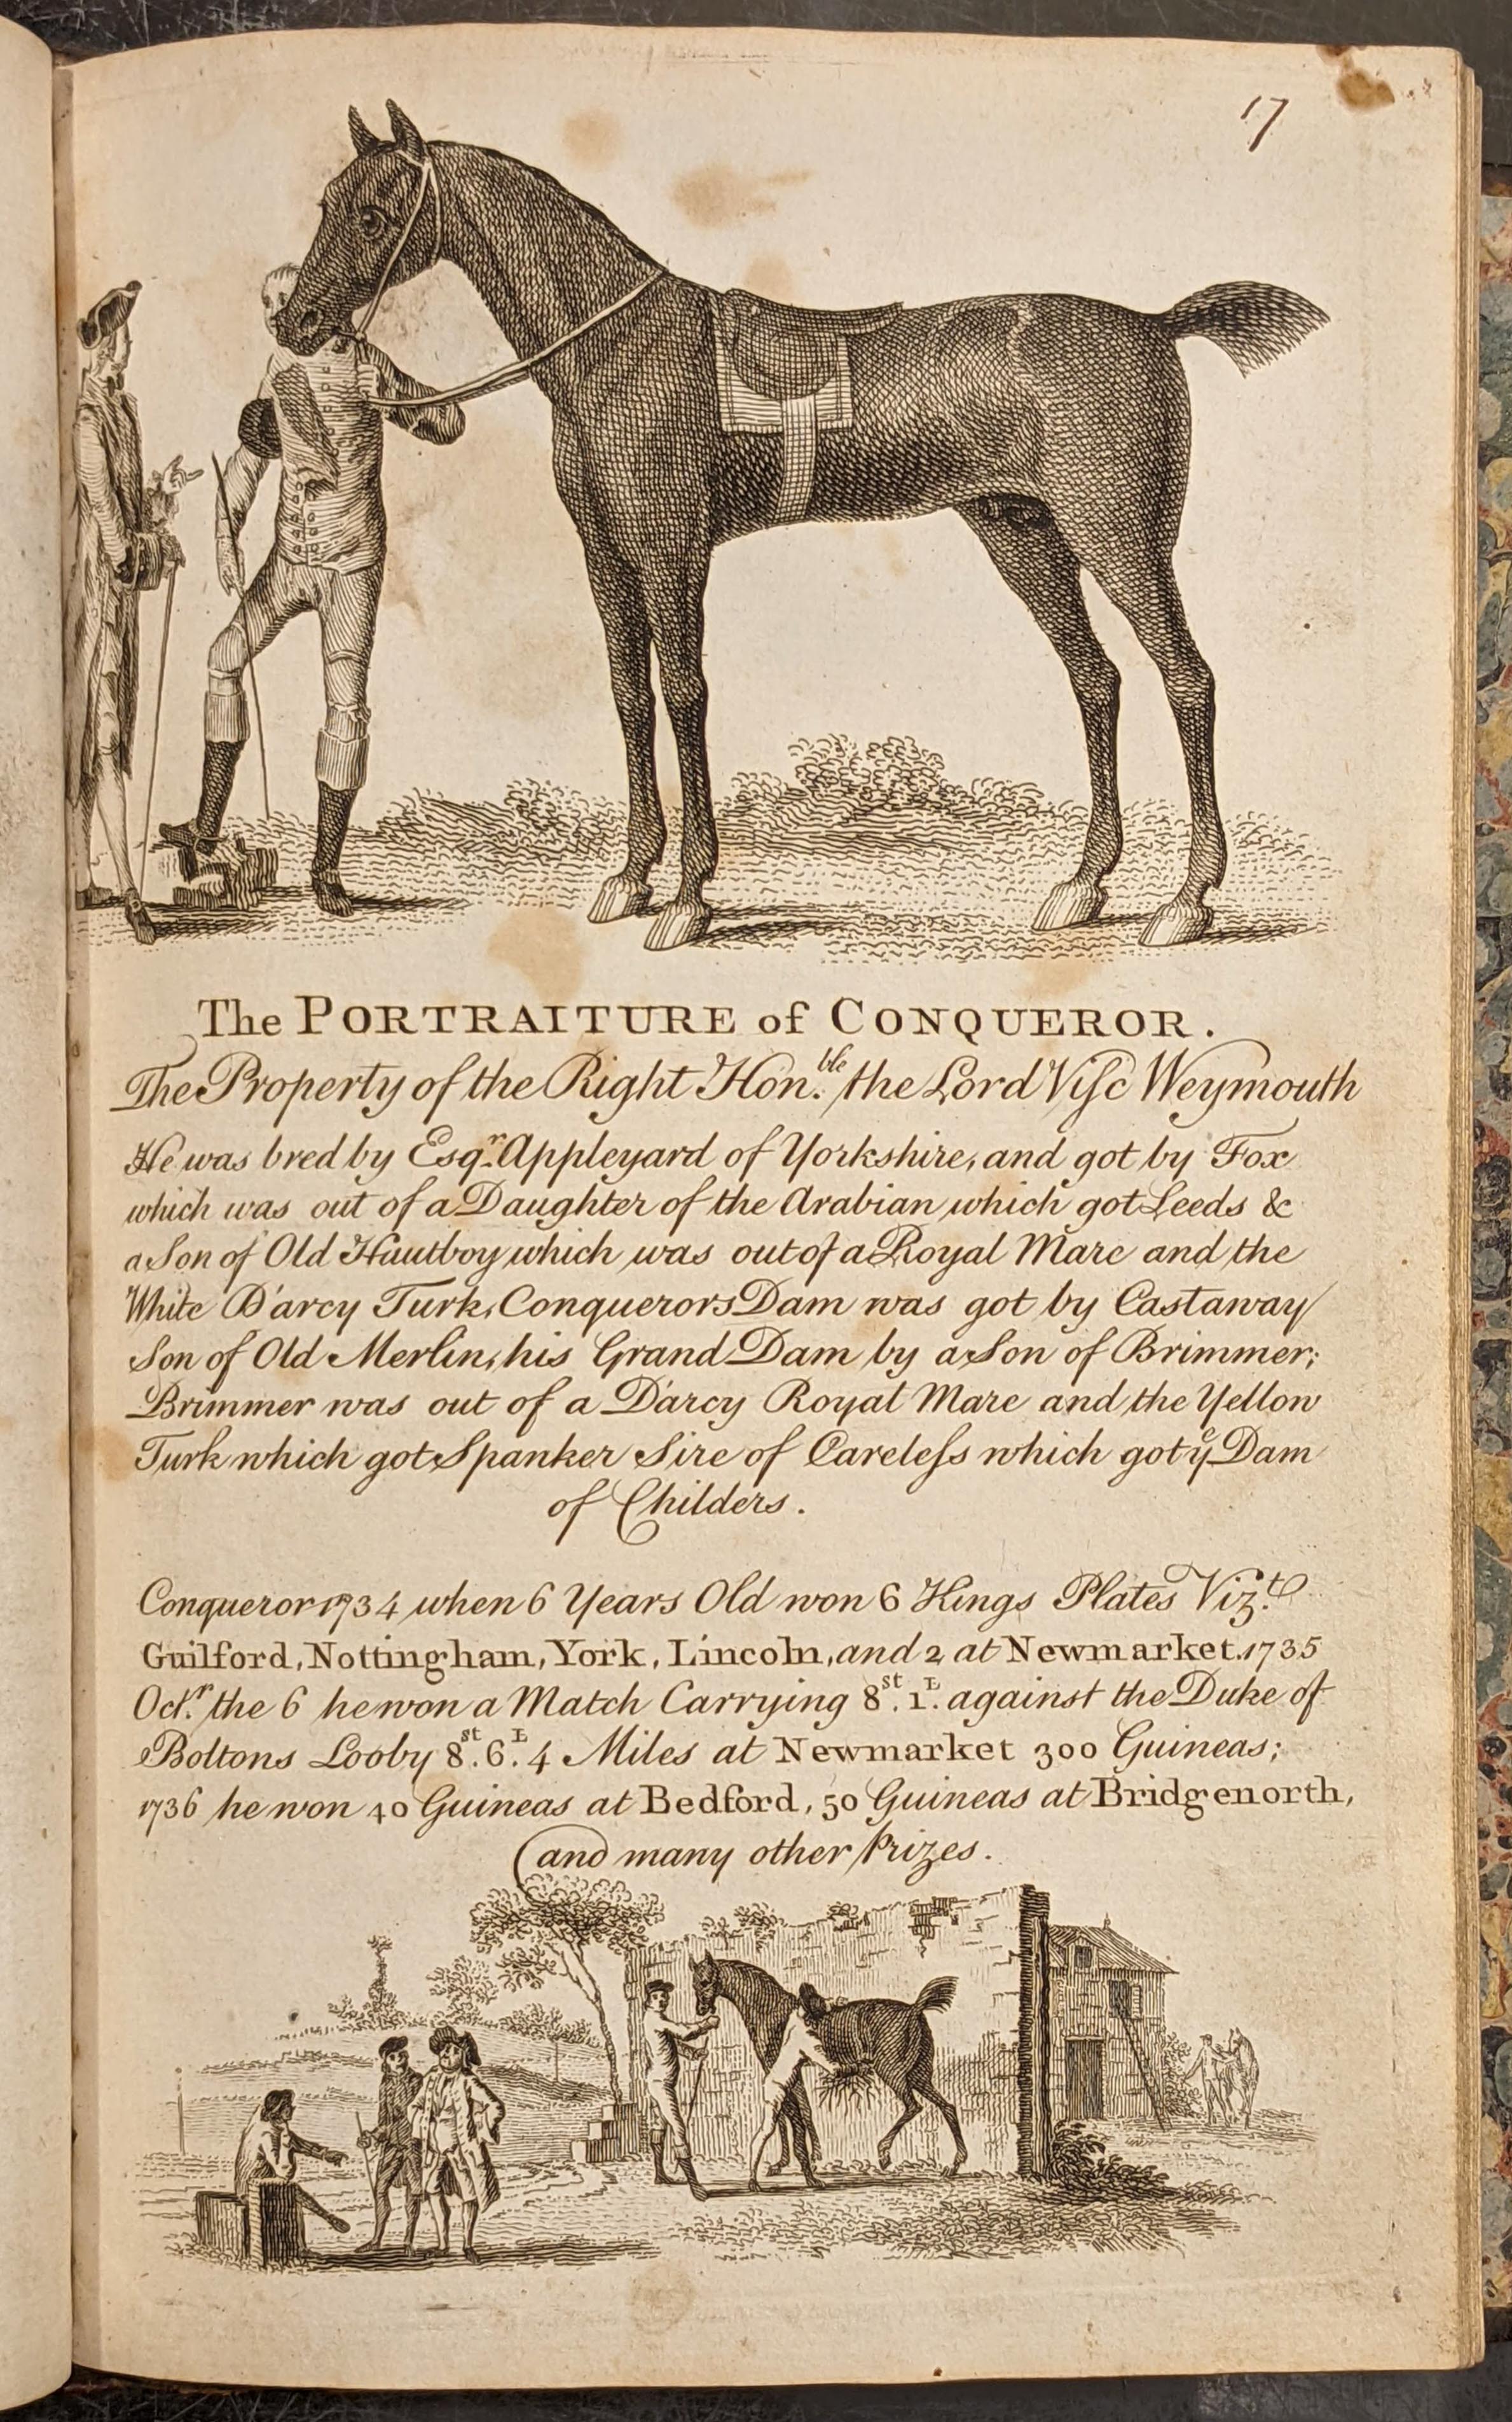 17
The PORTRAITURE of CONQUEROR.
The Property of the Right Hon.ble the Lord Viſc Weymouth
He was bred by Esqr. Appleyard of Yorkshire, and got by Fox
which was out of a Daughter of the Arabian which got Leeds &
a Son of Old Hautboy which was out of a Royal Mare and the
White D'arcy Turk, Conquerors Dam was got by Castaway
Son of Old Merlin, his Grand Dam by a Son of Brimmer;
Brimmer was out of a D'arcy Royal Mare and the Yellow
Turk which got Spanker Sire of Careleſs which got ye Dam
of Childers.
Conqueror 1734 when 6 Years Old won 6 Kings Plates Vizt.
Guilford, Nottingham, York, Lincoln, and 2 at Newmarket. 1735
Octr. the 6 he won a Match Carrying 8st. 1L. against the Duke of
Boltons Looby 8st. 6L. 4 Miles at Newmarket 300 Guineas;
1736 he won 40 Guineas at Bedford, 50 Guineas at Bridgenorth,
and many other Prizes.